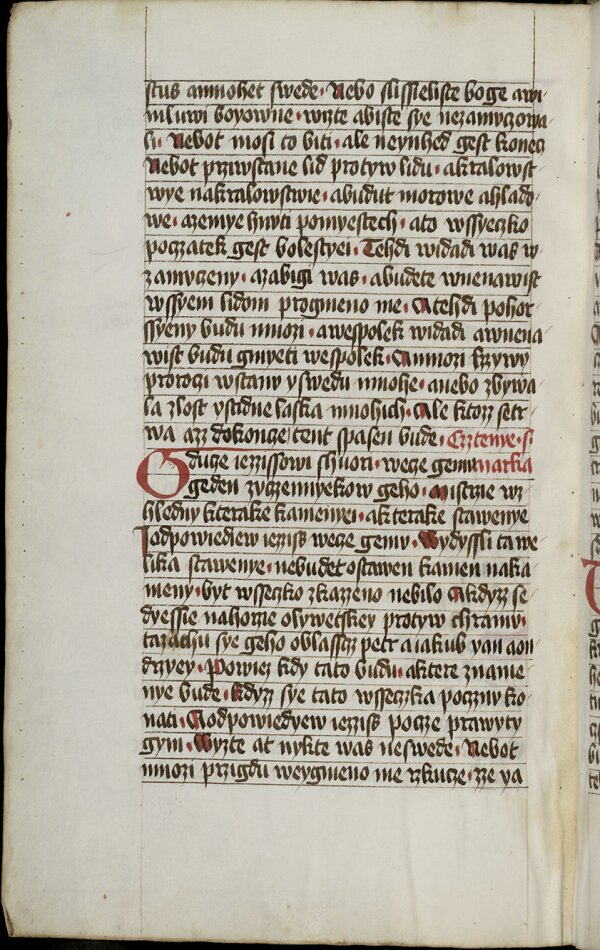 stus amnohet swede · Nebo slissieliste boge awi
mluwi boyowne · wizte abiste sye nezamuczowa
li · Nebot mosi to biti · ale neynhed gest konecz
Nebot przywstane lid protyw lidu · akralowst
wye nakralowstwie · abudut morowe ahlado
we · azemye hnuti pomyestech · ato wssyeczko
poczatek gest bolestyei · Tehdi widadi was w
zamuczeny · azabigi was · abudete wnenawist
wssyem lidom progmeno me · Atehdi pohor
ssyeny budu mnozi · awespolek widadi awnena
wist budu gmyeti wespolek · Amnozi krzywy
prorozi wstanu yswedu mnohe · anebo zbywa
la zlost ustidne laska mnohich · Ale ktozz setr
wa azz dokoncze tent spasen bude · Cztenye · s
Gducze iezzissowi schuori · wecze gemu marka
geden zuczennyekow geho · Mistrzie wz
hledny kterake kamenyei · akterake stawenye
Iodpowiediew iezziss wecze gemu · Wydyssli ta we
lika stawenye · nebudet ostawen kamen naka
meny · byt wsseczko zkazzeno nebilo Akdyzz se
dyessie nahorzie olywetskey protyw chramu ·
tazachu sye geho oblasscz petr a iakub yan aon
drzyey · Powiez kdy tato budu · aktere zname
nye bude · kdyzz sye tato wsseczka poczny ko
nati · Aodpowiedyew iezziss pocze prawyty
gym · Wyzte at nykte was neswede · Nebot
mnozi przigdu weygmeno me rzkucze · zze ya